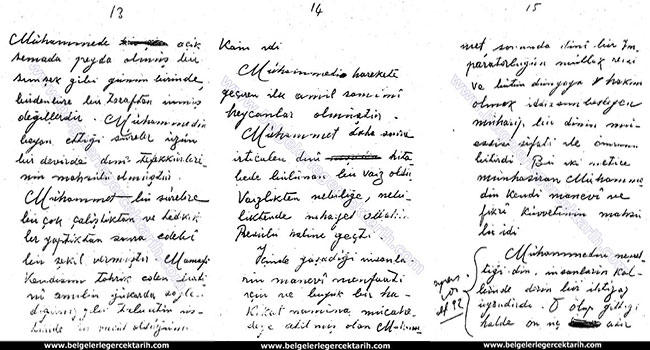 13
Mühammede açık
semada peyda olmuş bir
şimşek gibi günün birinde,
birdenbire bir taraftan inmiş
değillerdir. Mühammedin
beyan ettiği sûreler uzun
bir devirde dinî tefekkürleri-
nin mahsulü olmuştur.
Mühammet bu sûrelere
bir çok çalıştıktan ve tedkik-
ler yaptıktan sonra edebî
bir şekil vermiştir. Mamafi
Kendisini tahrik eden
14
Kani idi
Mühammedi harekete
geçiren ilk amil samimî
heyecanlar olmuştur.
Mühammet daha sonra
irticalen dinî hita
bede bulunan bir vaiz oldu
Vaizlikten nebiliğe, nebi-
likten de nihayet
Resulü haline geçti.
İçinde yaşadığı insanla-
rın manevî menfaati
için ve büyük bir ha-
kikat namına mücade-
leye atılmış olan
15
met sonunda dinî bir im-
paratorluğun mutlak reisi
ve bütün dünyaya hakim
olmak iddiasını besleyen
muharip bir dinin mü-
essisi sıfatı ile ömrünü
bitirdi. Bu iki netice
münhasıran Mühamme-
din kendi manevî ve
fikrî kuvvetinin mahsu
lü idi
Mühammedin
tiği din, insanların kal-
binde derin bir ihtiyaç
halde on üç asır
www.belgelerlegercektarih.com
www.belgelerlegercektarih.com
www.belgelerlegercektarih.com